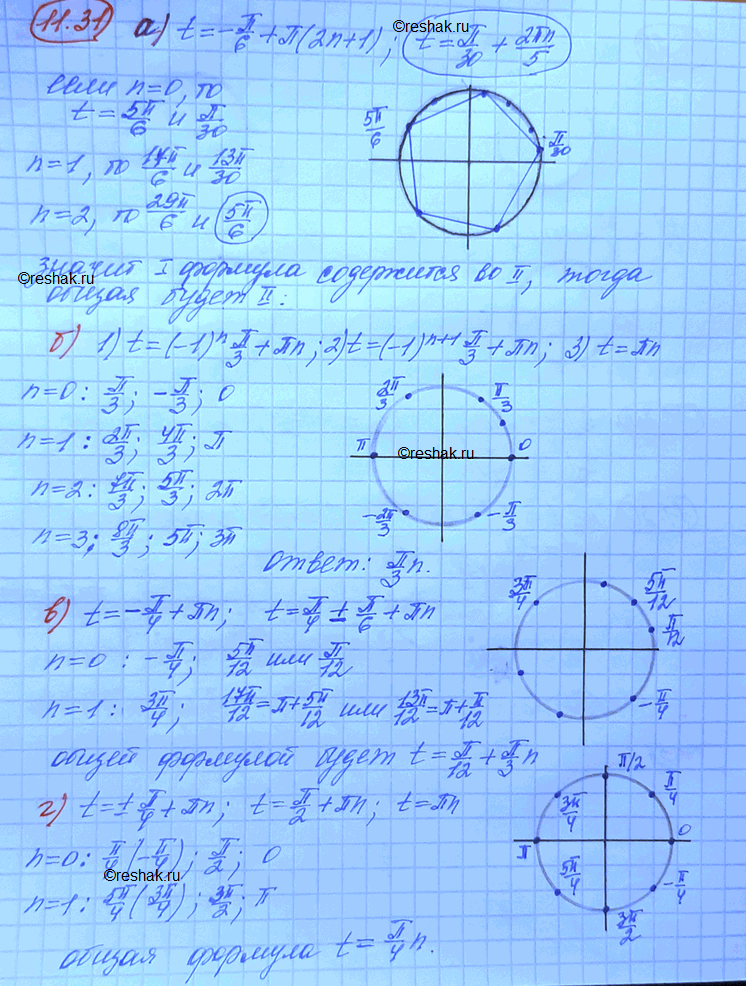 11.31 а) t=-π/6+π(2n+1); t=π/30+2πn/5
©reshak.ru
если n=0, то
t=5π/6 и π/30
n=1, то 17π/6 и 13π/30
n=2, то 29π/6 и 5π/6
5π/6
π/30
значит I формула содержится во II, тогда
©reshak.ru
общая будет II:
б) 1) t=(-1)ⁿ π/3+πn; 2) t=(-1)ⁿ⁺¹ π/3+πn; 3) t=πn
n=0: π/3; -π/3; 0
n=1: 2π/3; 4π/3; π
n=2: 7π/3; 5π/3; 2π
n=3: 8π/3; 5π; 3π
2π/3
π/3
π
©reshak.ru
0
-2π/3
-π/3
ответ: π/3 n.
в) t=-π/4+πn; t=π/4±π/6+πn
n=0: -π/4; 5π/12 или π/12
n=1: 3π/4; 17π/12=π+5π/12 или 13π/12=π+π/12
3π/4
5π/12
π/12
-π/4
общей формулой будет t=π/12+π/3 n
г) t=±π/4+πn; t=π/2+πn; t=πn
n=0: π/4(-π/4); π/2; 0
n=1: 5π/4(3π/4); 3π/2; π
π/2
3π/4
π/4
π
0
5π/4
-π/4
3π/2
общая формула t=π/4 n.
©reshak.ru